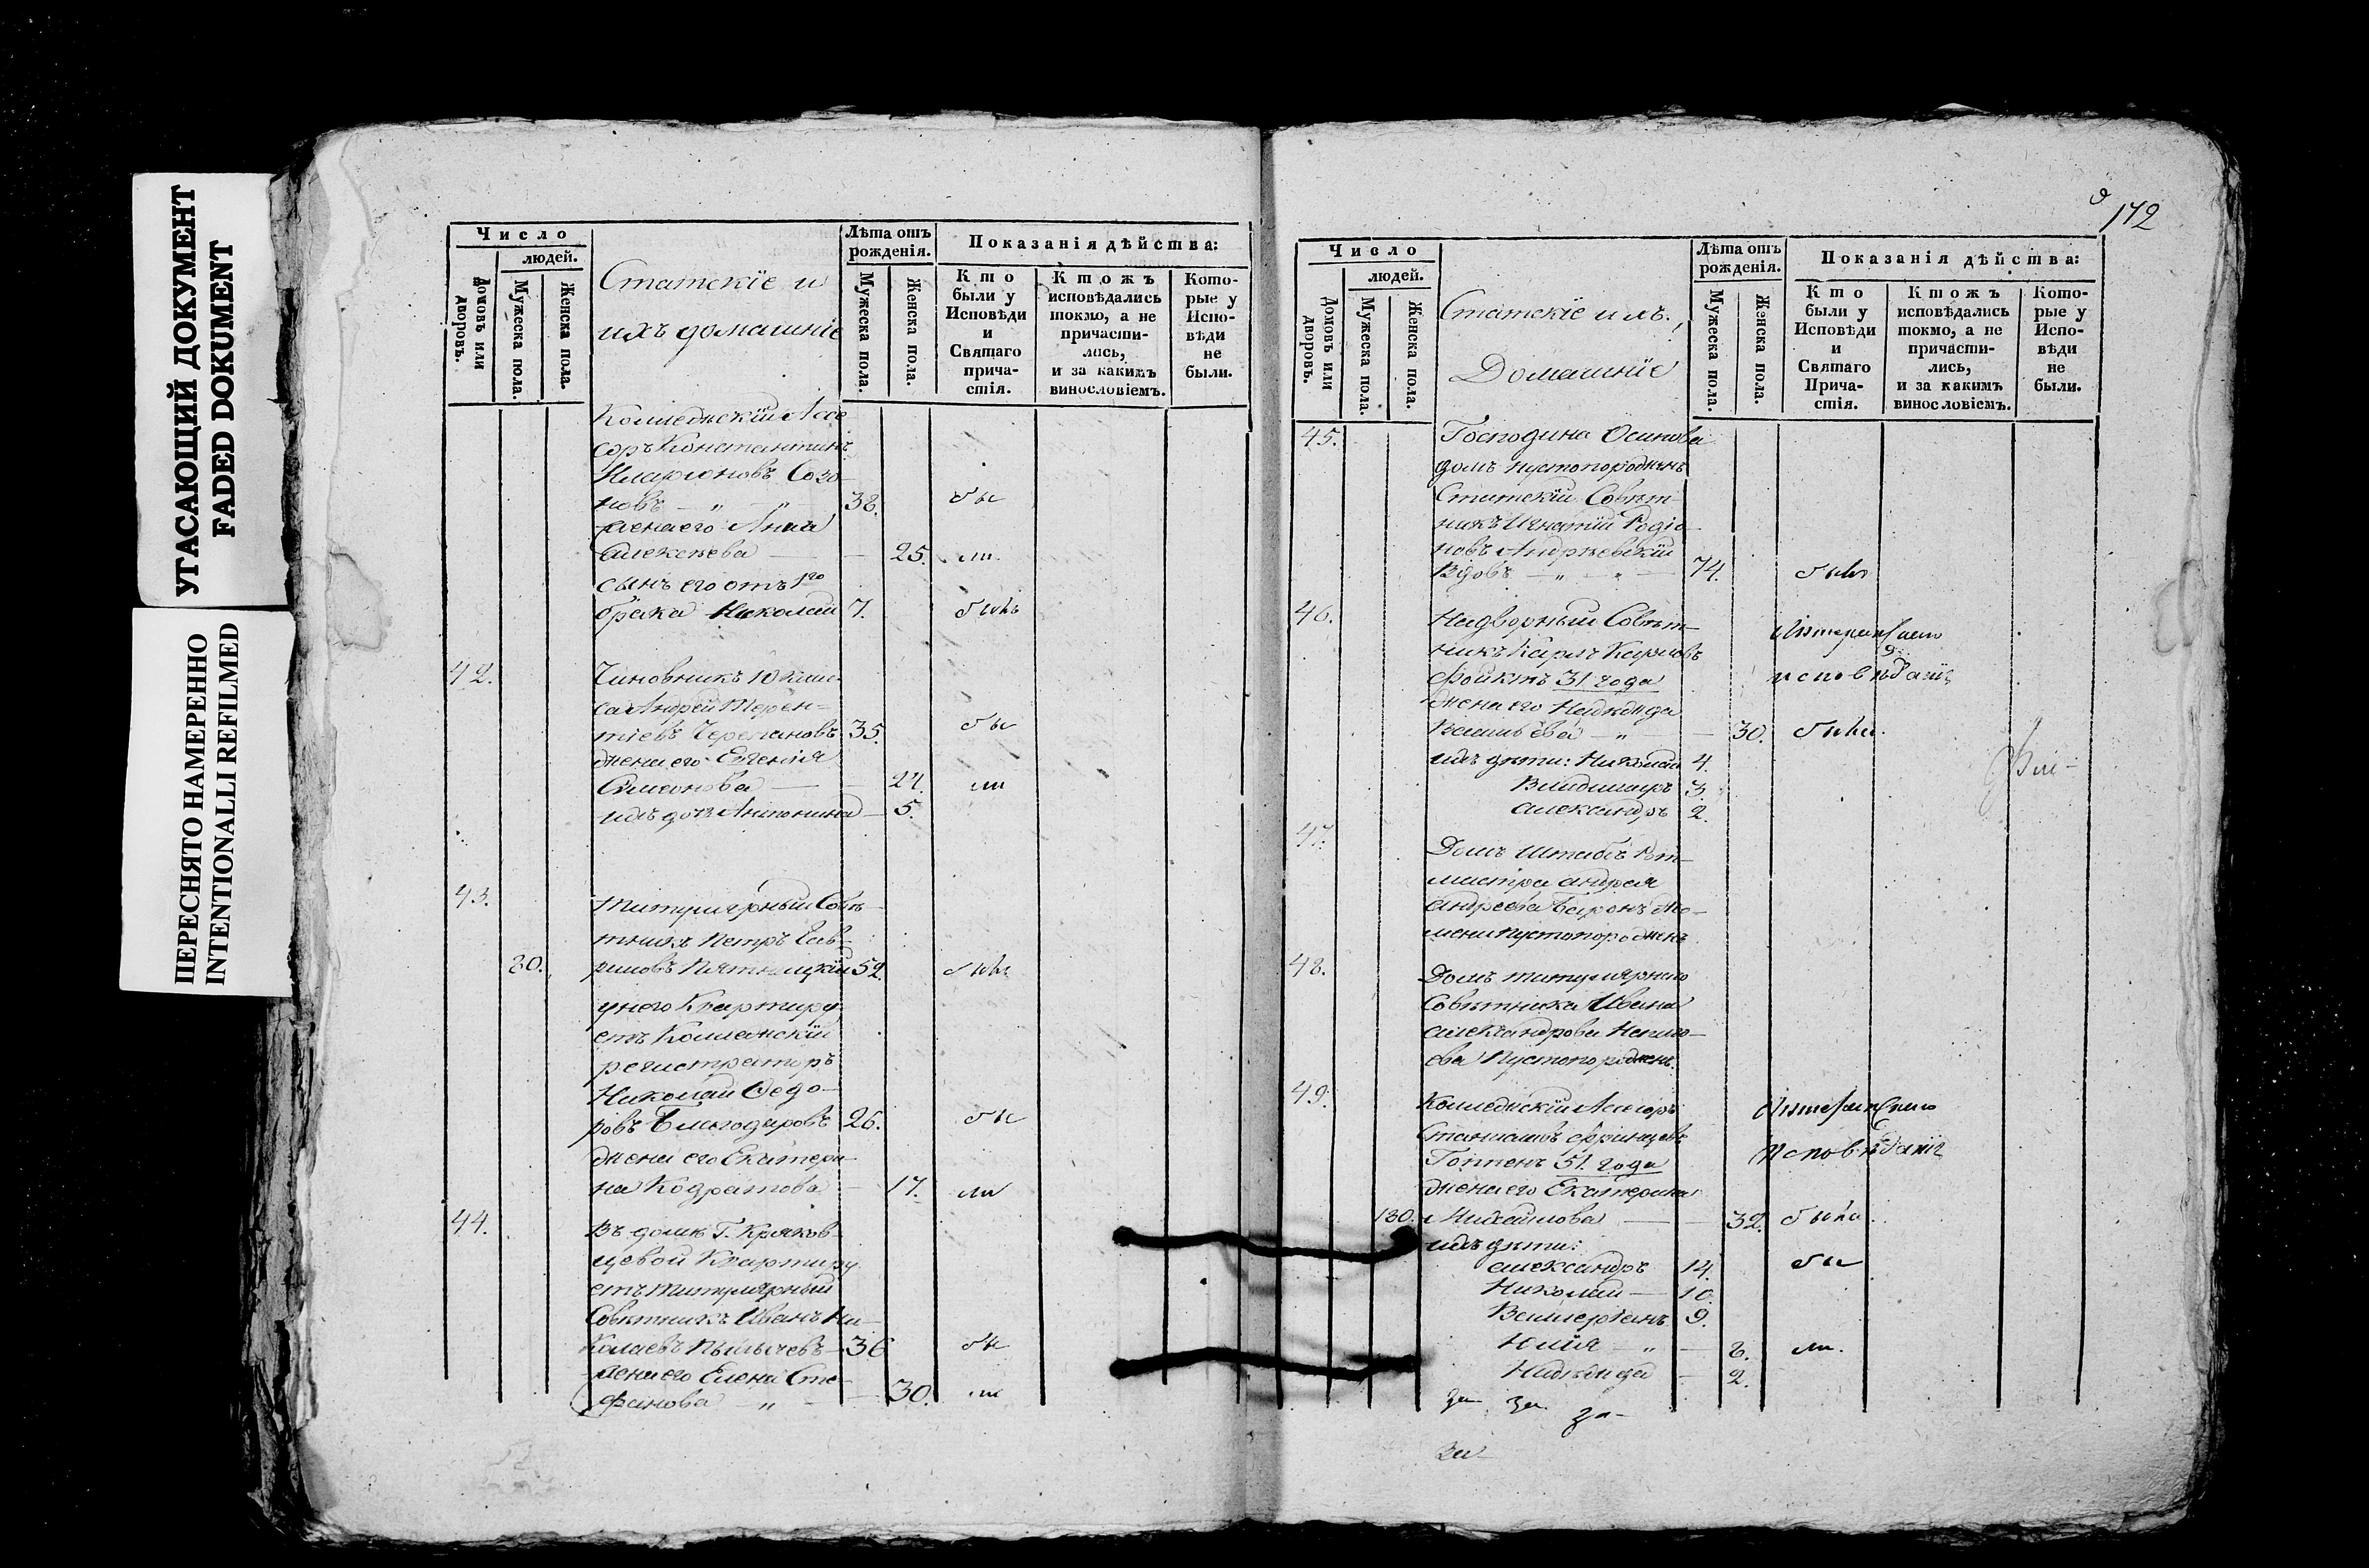 УГАСАЮЩИЙ ДОКУМЕНТ
FADED DOKUMENT
ПЕРЕСНЯТО НАМЕРЕННО
INTENTIONALLI REFILMED
Число
людей.
Домовъ или дворовъ.
Мужеска пола.
Женска пола.
Статскіе и
ихъ домашніе
Лѣта отъ рожденія.
Мужеска пола.
Женска пола.
Показанія дѣйства:
Кто были у Исповѣди и Святаго причастія.
Ктожъ исповѣдались токмо, а не причастились, и за какимъ винословіемъ.
Которые у Исповѣди не были.
Коллежскій Ассе-
соръ Константинъ
Иларіоновъ Созо-
новъ — „ — „ — 38. бы
жена его Анна
Алексѣева — — 25. ли
сынъ его отъ 1го
брака Николай 7. былъ
42. Чиновникъ 10 клас-
са Андрей Терен-
тіевъ 35. бы
жена его Евгенія
Симонова — — 24. ли
ихъ дочь Антонина — 5.
43. Титулярный Совѣ-
тникъ Петръ Гав-
80. риловъ Пятницкій 52. былъ
у него Квартиру-
етъ Коллежскій
регистраторъ
Николай Ѳедо-
ровъ Благодаровъ 26. бы
жена его Екатери-
на Кодратова — 17. ли
44. Въ домѣ Г. Кряков-
цевой Квартиру
етъ титулярный
Совѣтникъ Иванъ Ни-
колаевъ — 36 бы
жена его Елена Сте-
фанова — „ — 30. ли
172
Число
людей.
Домовъ или дворовъ.
Мужеска пола.
Женска пола.
Статскіе и ихъ
Домашніе
Лѣта отъ рожденія.
Мужеска пола.
Женска пола.
Показанія дѣйства:
Кто были у Исповѣди и Святаго Причастія.
Ктожъ исповѣдались токмо, а не причастились, и за какимъ винословіемъ.
Которые у Исповѣди не были.
45. Господина Осипова
домъ пустопорожнѣнъ
Статскій Совѣт-
никъ Игнатій Родіо-
новъ Андріевскій
Вдовъ — „ — „ — 74. былъ
46. Надворный Совѣт-
никъ Карлъ Карловъ
31 года
Лютеранскаго
исповѣданія
жена его Надежда
Васильева — „ — 30. была.
ихъ дѣти: Николай 4.
Владимиръ 3.
Александръ 2.
47. Домъ Штабсъ Рот-
мистра Андрея
Андреева Баронъ Ме-
пустопорожнѣ
48. Домъ титулярнаго
Совѣтника Ивана
Александрова
Пустопорожнѣнъ.
49. Коллежскій Ассесоръ
Станиславъ Францевъ
51. года
Лютеранскаго
исповѣданія
жена его Екатерина
130. Михайлова — — 32. была.
ихъ дѣти:
Александръ 14. бы
Николай — 10.
Валлеріанъ 9.
Юлія — „ — 8. ли.
Надежда — 2.
за за за-
за-